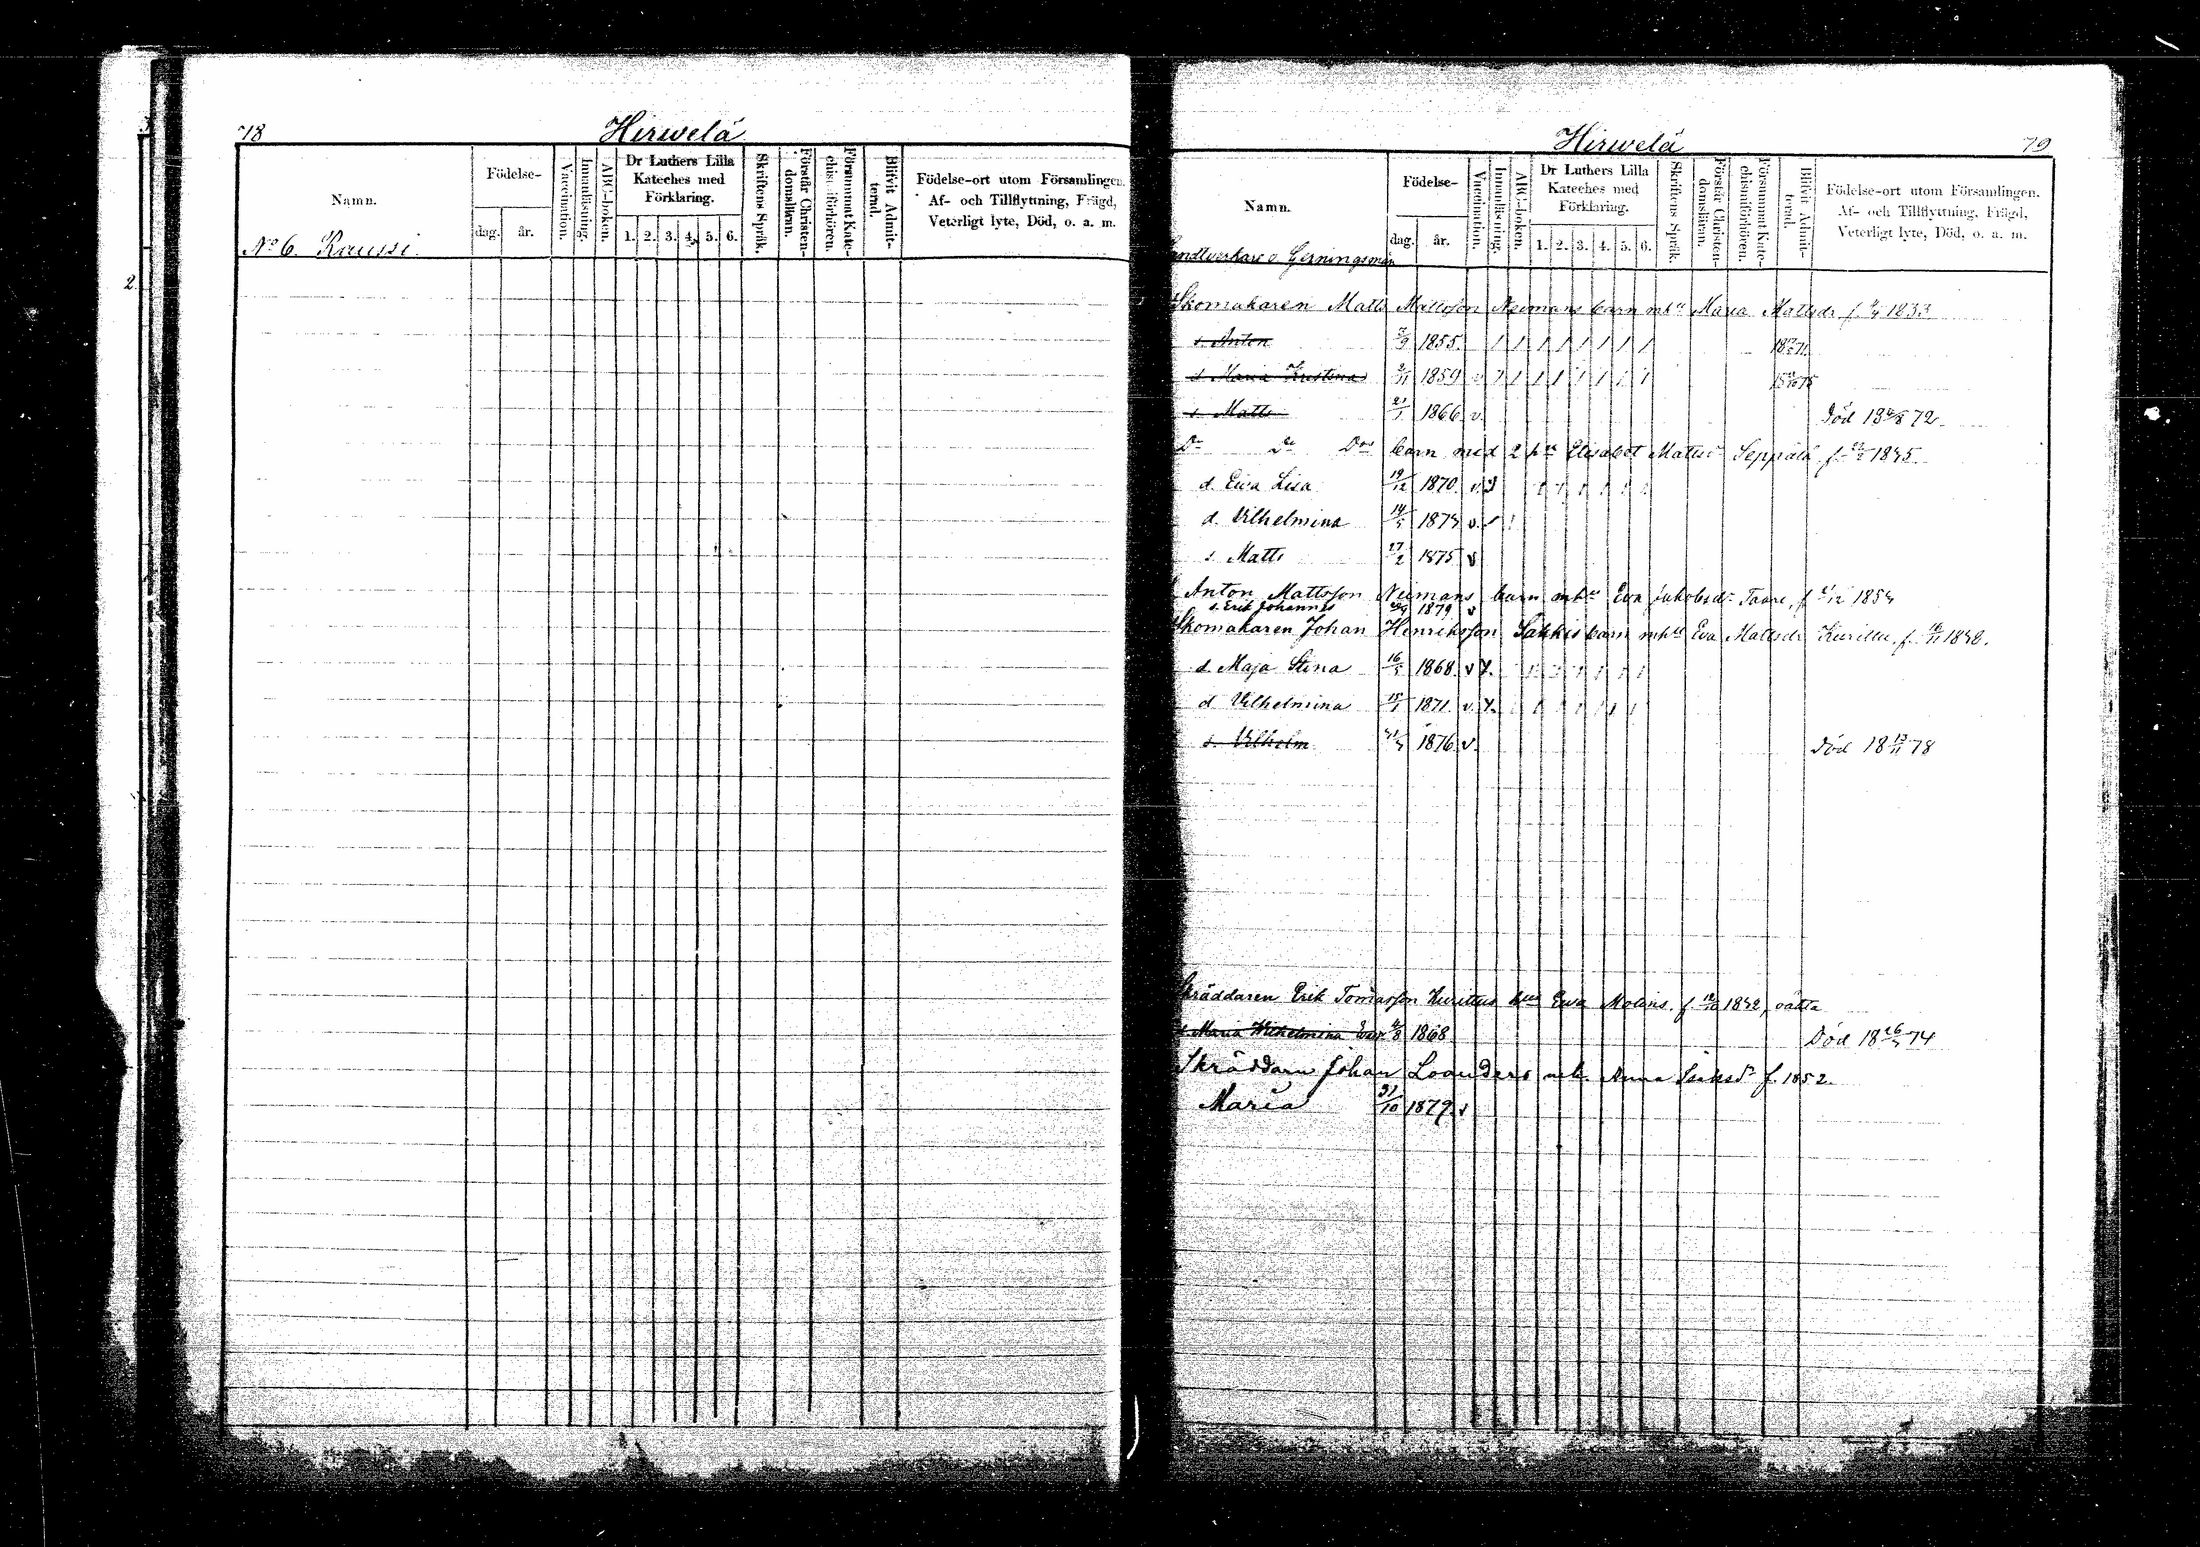 78
Hirwelä
Namn.
Födelse-
dag. år.
Vaccination.
Innanläsning.
ABC-boken.
Dr Luthers Lilla Kateches med Förklaring.
1. 2. 3. 4. 5. 6.
Skriftens Språk.
Förstår Christendomsläran.
Försummat Katechismiförhören.
Blifvit Admitterad.
Födelse-ort utom Församlingen. Af- och Tillflyttning, Frägd, Veterligt lyte, Död, o. a. m.
No 6. Raussi.
2
Hirwelä
79
Namn.
Födelse-
dag. år.
Vaccination.
Innanläsning.
ABC-boken.
Dr Luthers Lilla Kateches med Förklaring.
1. 2. 3. 4. 5. 6.
Skriftens Språk.
Förstår Christendomsläran.
Försummat Katechismiförhören.
Blifvit Admitterad.
Födelse-ort utom Församlingen. Af- och Tillflyttning, Frägd, Veterligt lyte, Död, o. a. m.
Handtverkare o. Gerningsmän
Skomakaren Matts Mattsson Neimans barn mhu Maria Mattsdr f. 1833
s. Anton 1855.
d. Maria Kristina 1859 v
s. Matts 21/1 1866 v. Död 18 72
Do Do Dos barn med 2 hu Elisabet Mattsdr Seppälä f. 1845.
d. Eva Lisa 19/12 1870 v.
d. Vilhelmina 14/5 1873 v.
s. Matts 27/2 1875 v
Anton Mattsson Neimans barn mhu Eva Jakobsdr Taare, f. 1854
s. Erik Johannes 1879 v
Skomakaren Johan Henriksson Säkkis barn mhu Eva Mattsdr Kurittu, f. 16/11 1842.
d. Maja Stina 16/5 1868 v
d. Vilhelmina 15/1 1871 v.
s. Vilhelm 1876 v. Död 18 13/11 78
Skräddaren Erik Tomasson Kurittus hus Ewa Molins. f. 12/10 1842, oäkta
d. Maria Wilhelmina 1868 Död 18 74
Skräddarn Johan Loanders mh. Anna f. 1852.
Maria 31/10 1879 v